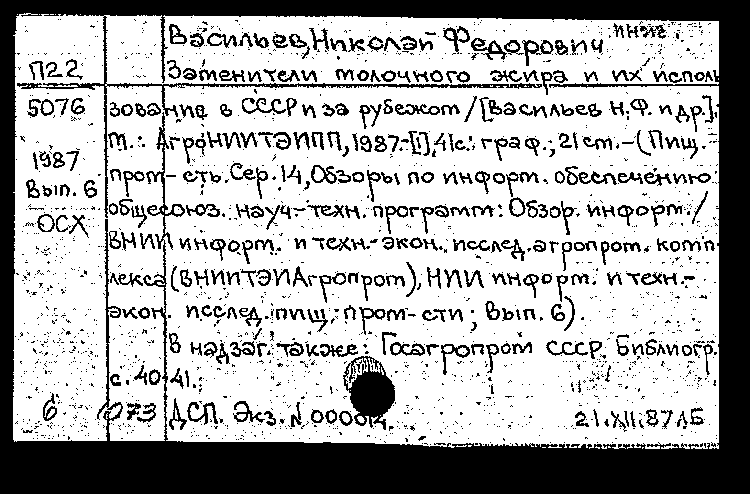 Васильев, Николай Федорович
П22 Заменители молочного жира и их исполь
5076 зование в СССР и за рубежом / [Васильев Н.Ф. и др.],
М.: АгроНИИТЭИПП, 1987.-[1], 41с.: граф.; 21 см. - (Пищ.
1987 пром-сть. Сер. 14, Обзоры по информ. обеспечению
Вып. 6 общесоюз. науч-техн. программ: Обзор. информ. /
ОСХ ВНИИ информ. и техн.-экон. исслед. агропром. комп-
лекса (ВНИИТЭИАгропром), НИИ информ. и техн.-
экон. исслед. пищ. пром-сти; Вып. 6).
В надзаг. также: Госагропром СССР. Библиогр.
с. 40-41.
6 1073 ДСП. Экз. N 000014. 21.XII.87 ЛБ